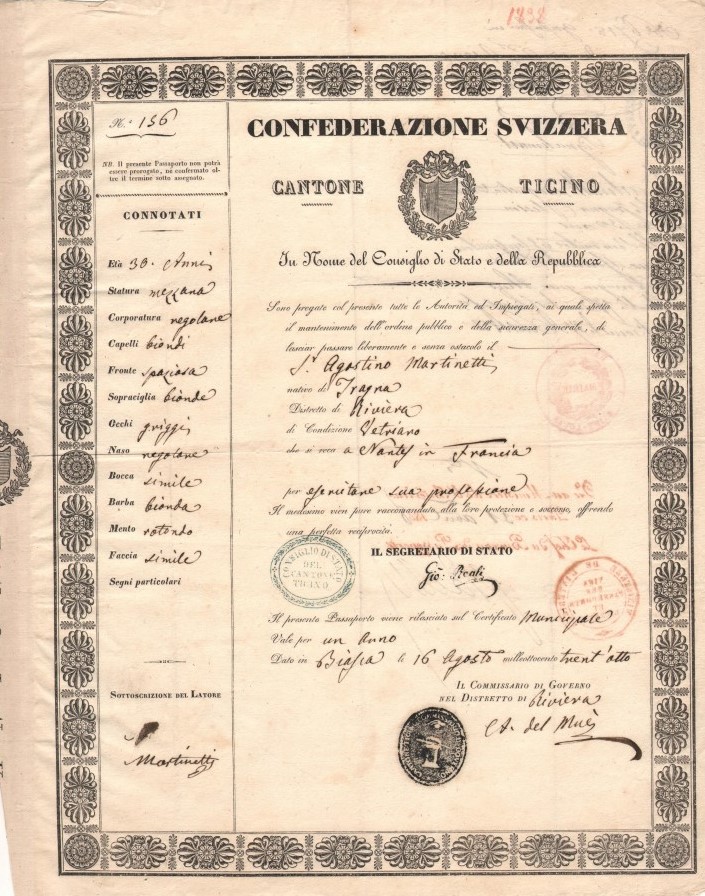 1838
N.° 156
NB. Il presente Passaporto non potrà
essere prorogato, nè confermato ol-
tre il termine sotto assegnato.
CONNOTATI
Età 38. Anni
Statura mezzana
Corporatura regolare
Capelli biondi
Fronte spaziosa
Sopraciglia bionde
Occhi griggi
Naso regolare
Bocca simile
Barba bionda
Mento rotondo
Faccia simile
Segni particolari
SOTTOSCRIZIONE DEL LATORE
Martinetti
CONFEDERAZIONE SVIZZERA
CANTONE TICINO
In Nome del Consiglio di Stato e della Repubblica
Sono pregate col presente tutte le Autorità ed Impiegati, ai quali spetta
il mantenimento dell'ordine pubblico e della sicurezza generale, di
lasciar passare liberamente e senza ostacolo il
S.r Agostino Martinetti
nativo di Iragna
Distretto di Riviera
di Condizione Vetriaro
che si reca a Nantes in Francia
per esercitare sua professione
Il medesimo vien pure raccomandato alla loro protezione e soccorso, offrendo
una perfetta reciprocità.
IL SEGRETARIO DI STATO
CONSIGLIO DI STATO
DEL
CANTONE
TICINO
Gio: Reali
Il presente Passaporto viene rilasciato sul Certificato Municipale
Vale per un anno
Dato in Biasca li 16 Agosto milleottocento trent'otto
IL COMMISSARIO DI GOVERNO
NEL DISTRETTO DI Riviera
A. del Muè